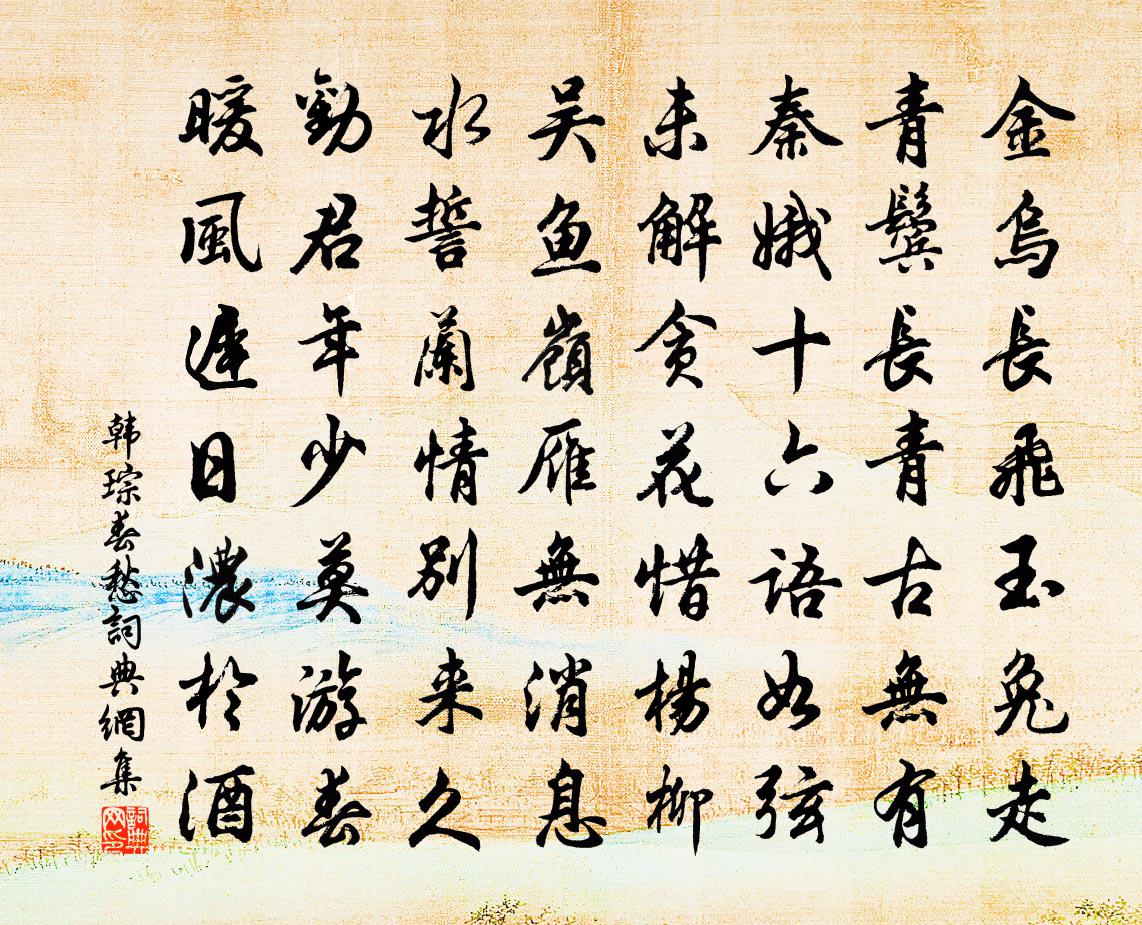 金烏長飛玉兔走
青鬢長青古無有
秦娥十六語如弦
未解貪花惜楊柳
吴魚嶺雁無消息
水誓蘭情别来久
勸君年少莫游春
暖風遲日濃於酒
韩琮春愁詞典網集
詞典网印